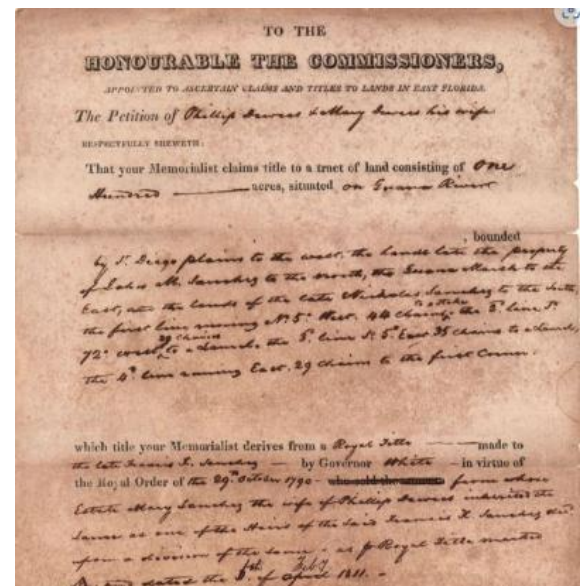 TO THE
HONOURABLE THE COMMISSIONERS,
APPOINTED TO ASCERTAIN CLAIMS AND TITLES TO LANDS IN EAST FLORIDA.
The Petition of Phillip Dewees & Mary Dewees his wife
RESPECTFULLY SHEWETH:
That your Memorialist claims title to a tract of land consisting of One
Hundred acres, situated on Guana River
, bounded
by St. Diego plains to the west, the lands late the property
of John M. Sanchez to the North, the Guana Marsh to the
East, and the lands of the late Nicholas Sanchez to the South,
to a stake
the first line running N. 5° West. 44 Chains, the 2d. line S.
29 Chains
72° west to a the 3d. line S. 5° East 35 Chains to a
the 4th. line running East. 29 Chains to the first Corner.
which title your Memorialist derives from a Royal Title made to
the late Francis X. Sanchez by Governor White in virtue of
the Royal Order of the 29th. October 1790 who sold the same from whose
Estate Mary Sanchez the wife of Phillip Dewees inherited the
Same as one of the Heirs of the said Francis X. Sanchez decd
upon a division of the same as pr Royal Title
dated the of April 1811.